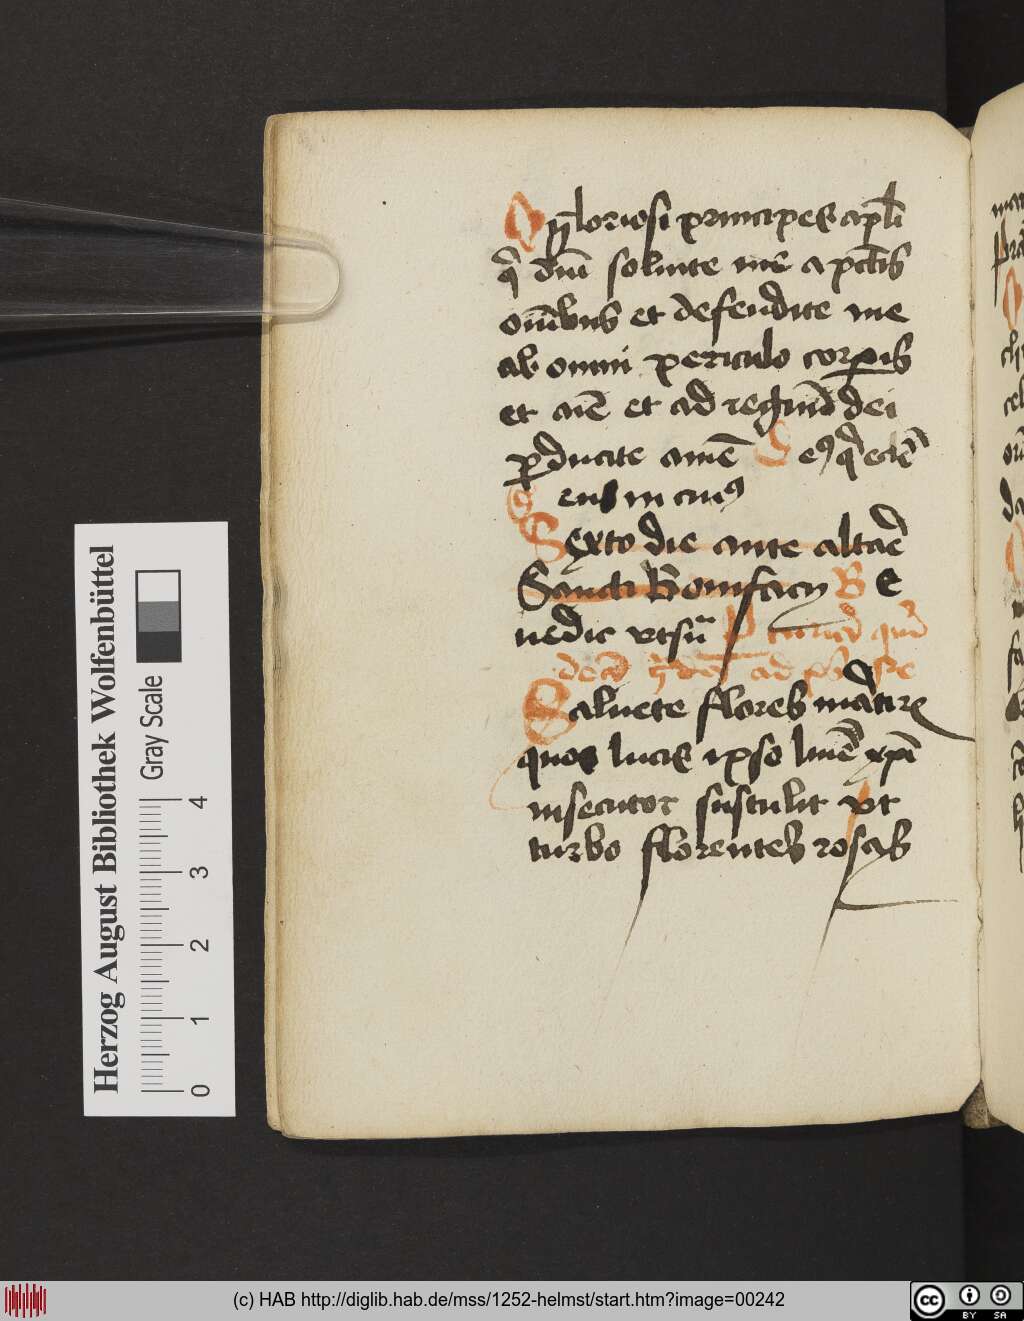 O gloriosi principes apl̄i
q̄ dn̄i soluite me a pctīs
oīnibus et defendite me
ab omni periculo corporis
et aīe et ad regnū dei
perducite amē D eꝰ q̄
ens in cuiꝰ
Sexto die ante altāe
Sancti Bonifacij B e
nedic vt sū
ad
Saluete flores mārtirꝝ
quos lucis ipso limē xp̄i
insecutor sustulit vt
turbo florentes rosas
Herzog August Bibliothek Wolfenbüttel
Gray Scale
0 1 2 3 4
(c) HAB http://diglib.hab.de/mss/1252-helmst/start.htm?image=00242
cc BY SA